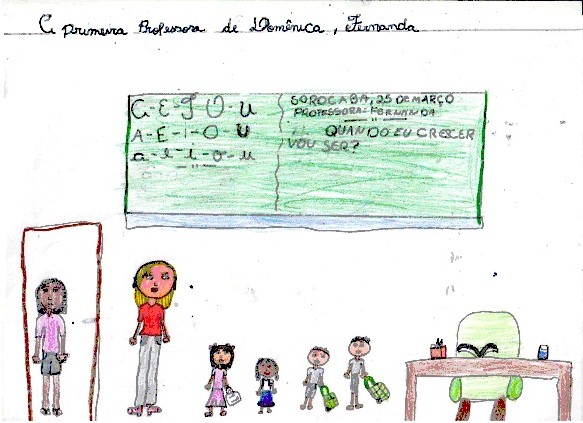 A primeira Professora de Domênica, Fernanda
A-E-I-O-U
A-E-I-O-U
a-e-i-o-u
SOROCABA, 25 DE MARÇO
PROFESSORA: FERNANDA
QUANDO EU CRESCER
VOU SER?